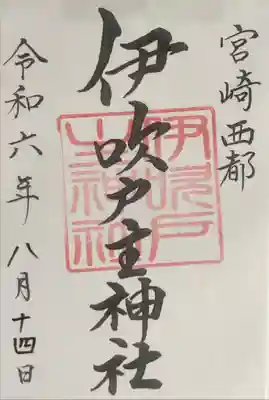 宮崎西都
伊吹戸主神社
令和六年 八月十四日
伊吹戸
主神社